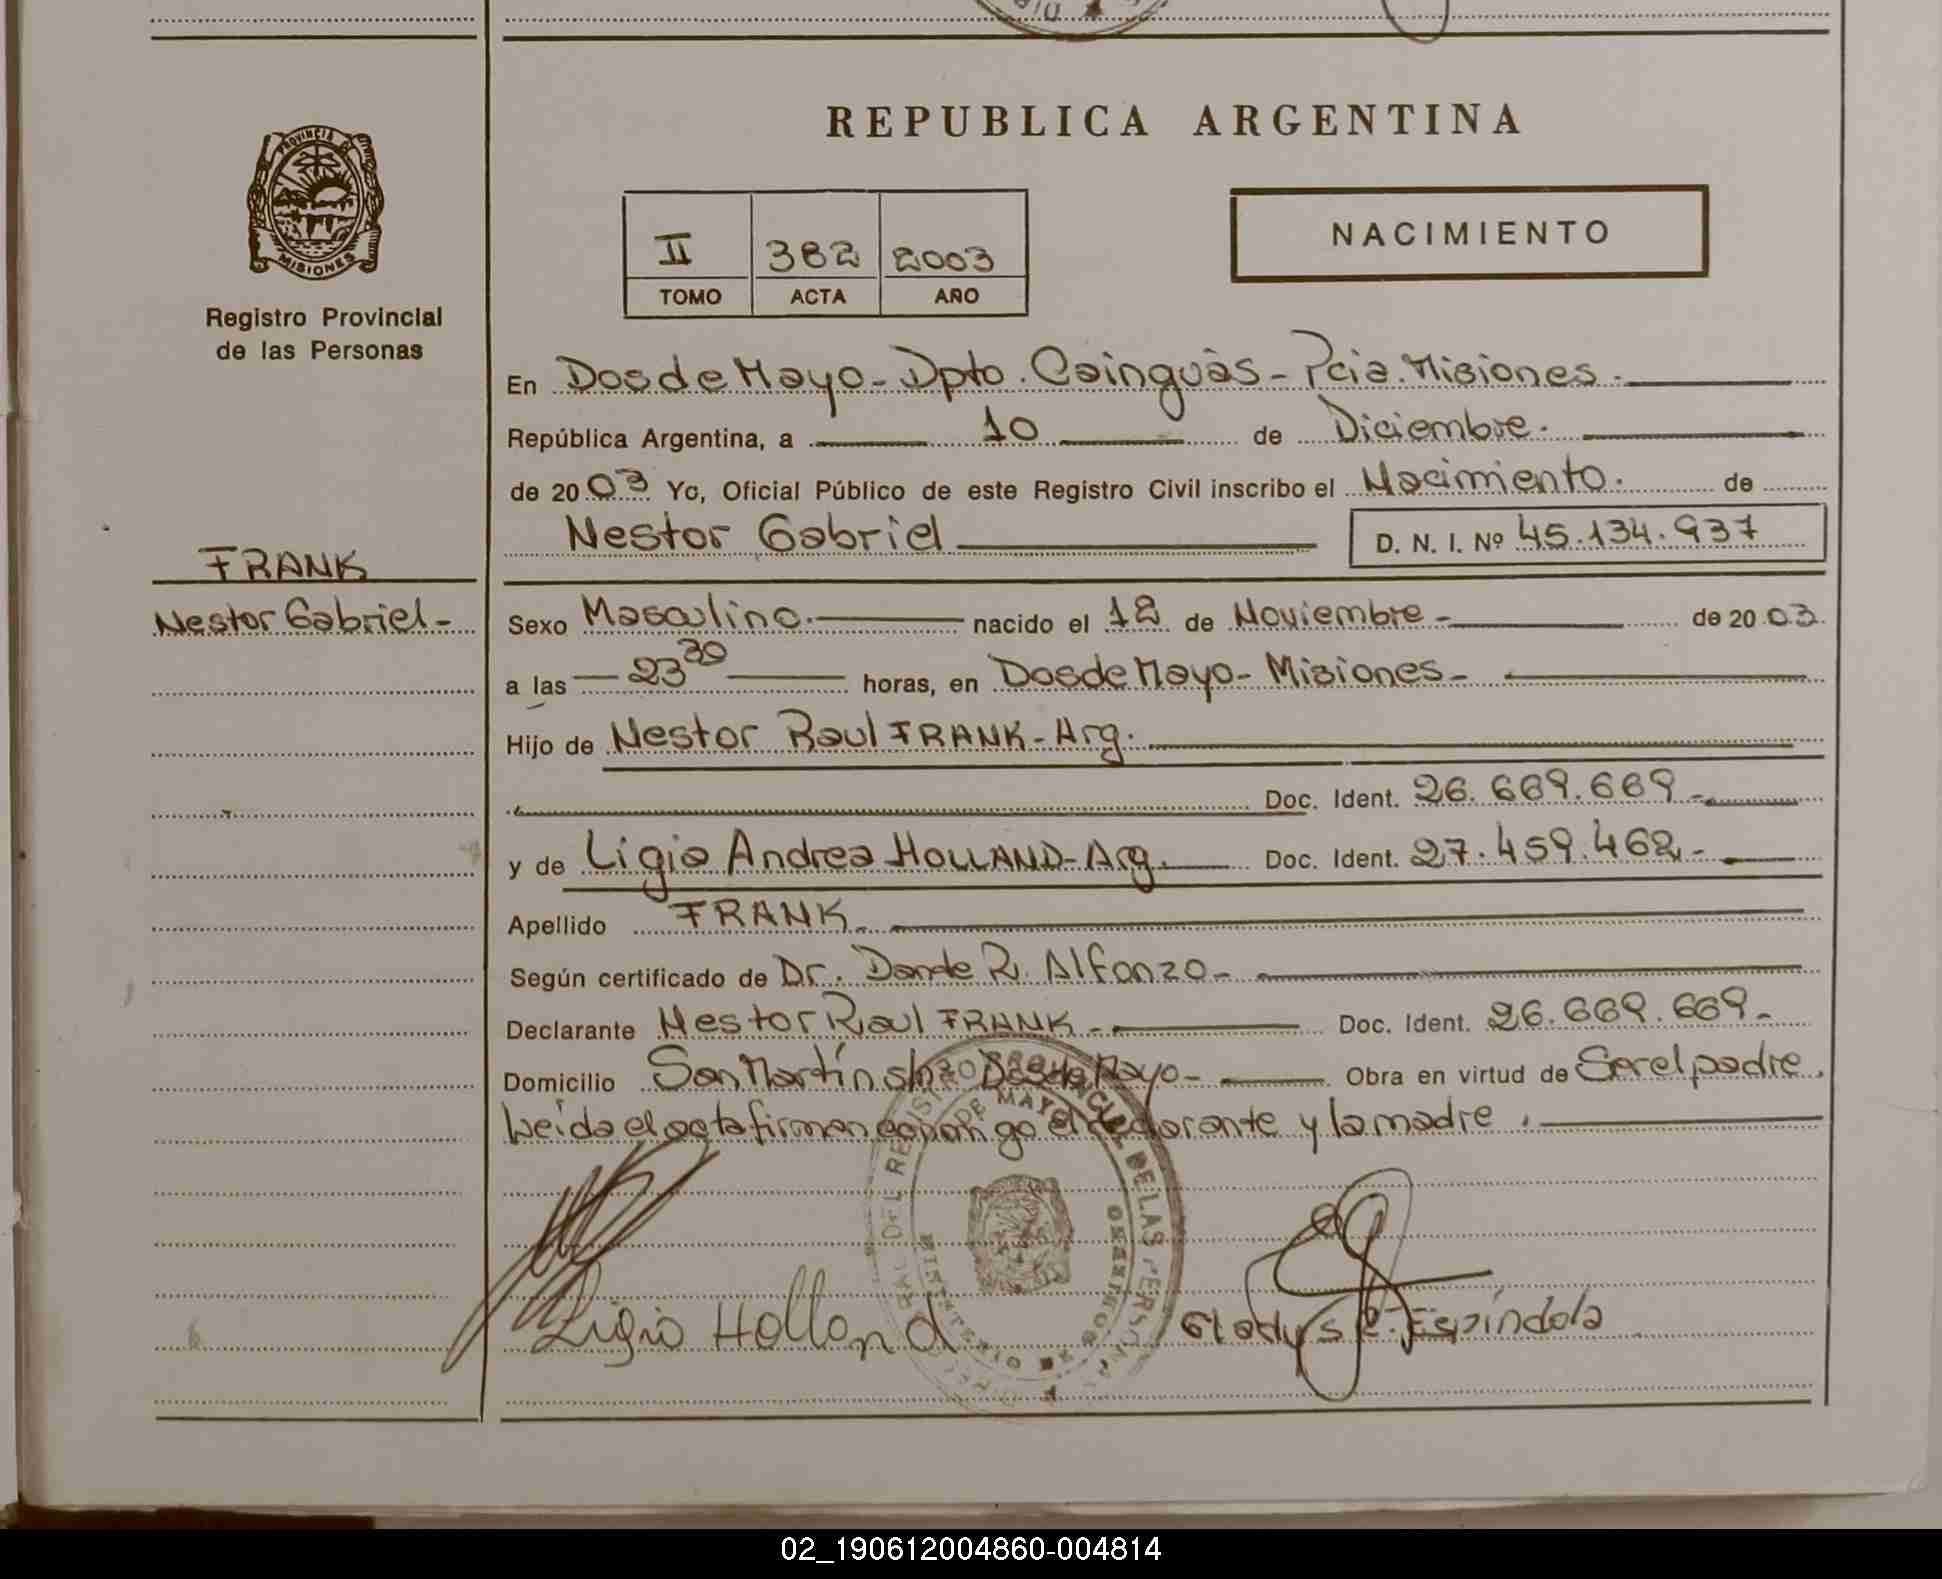 REPUBLICA ARGENTINA
PROVINCIA DE
MISIONES
Registro Provincial
de las Personas
II 382 2003
TOMO ACTA AÑO
NACIMIENTO
En Dos de Mayo - Dpto. Cainguàs - Pcia. Misiones.
República Argentina, a 10 de Diciembre.
de 20 03 Yo, Oficial Público de este Registro Civil inscribo el Nacimiento. de
Nestor Gabriel D. N. I. Nº 45.134.937
FRANK
Nestor Gabriel -
Sexo Masculino. nacido el 12 de Noviembre - de 20 03.
a las 23 30 horas, en Dos de Mayo - Misiones -
Hijo de Nestor Raul FRANK - Arg.
Doc. Ident. 26.669.669 -
y de Ligia Andrea HOLLAND - Arg. Doc. Ident. 27.459.462 -
Apellido FRANK.
Según certificado de Dr. Dande R. Alfonzo -
Declarante Nestor Raul FRANK - Doc. Ident. 26.669.669 -
Domicilio San Martín s/nro Dos de Mayo - Obra en virtud de Ser el padre.
Leída el acta firman conmigo el declarante y la madre.
Ligia Holland
Gladys E. Espíndola
DEL REGISTRO DE LAS PERSONAS
DE MAYO
MINISTERIO
02_190612004860-004814